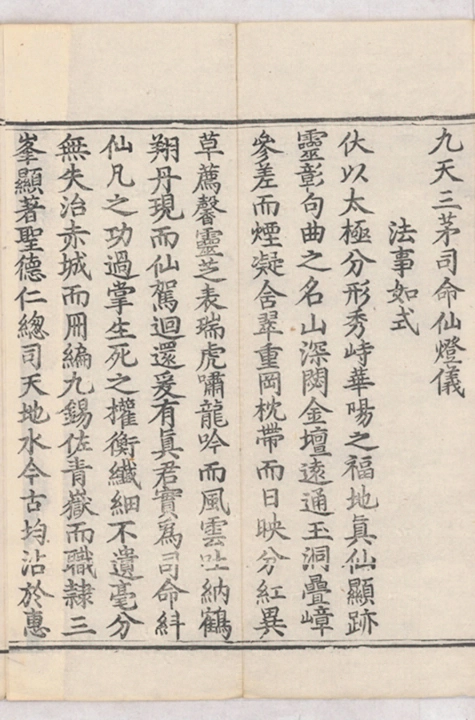 九天三茅司命仙燈儀
法事如式
伏以太極分形秀峙華陽之福地真仙顯跡
靈彰句曲之名山深閟金壇遠通玉洞疊嶂
參差而煙凝含翠重岡枕帶而日映分紅異
草薦馨靈芝表瑞虎嘯龍吟而風雲吐納鶴
翔丹現而仙駕迴還爰有真君實爲司命糾
仙凡之功過掌生死之權衡纖細不遺毫分
無失治赤城而冊編九錫佐青嶽而職隸三
峯顯著聖德仁總司天地水今古均沾於惠